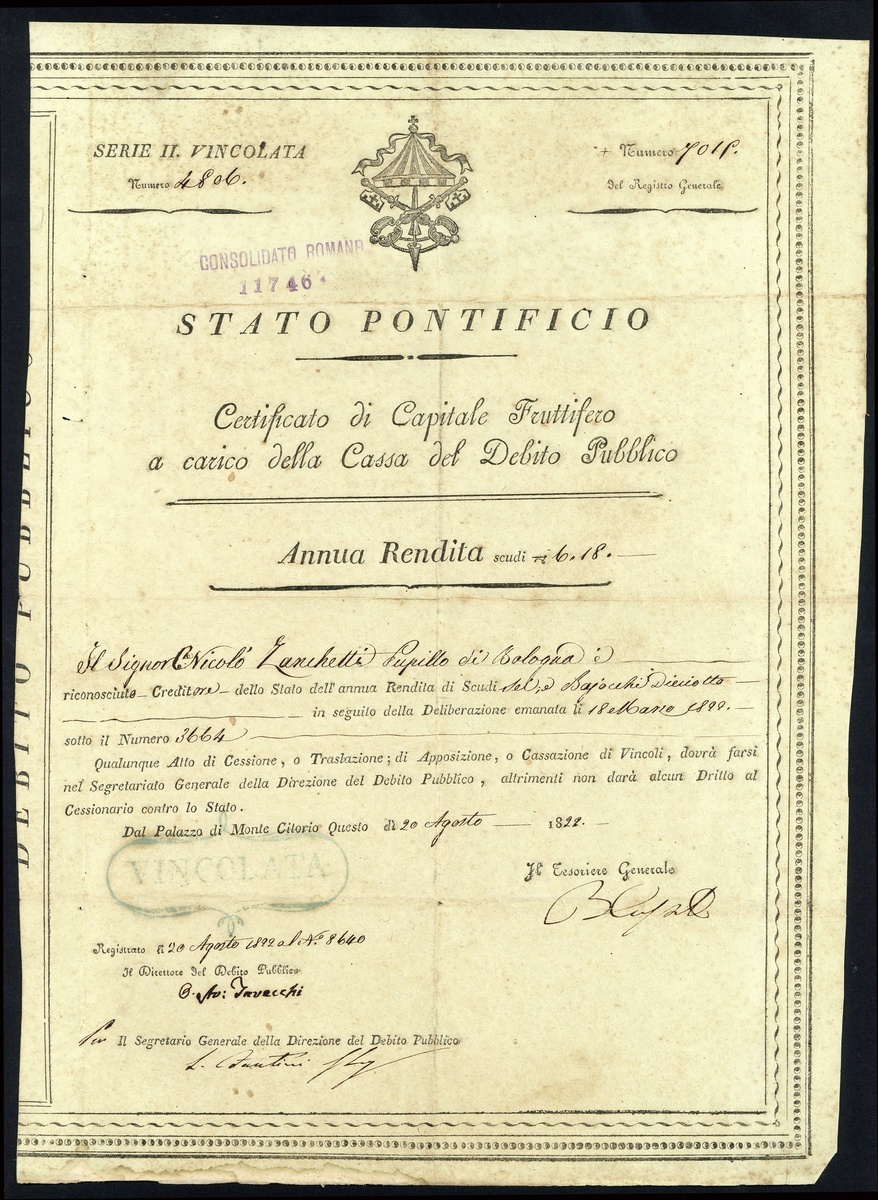 SERIE II. VINCOLATA
Numero 4806.
+ Numero 7015.
del Registro Generale
CONSOLIDATO ROMANO
11746
STATO PONTIFICIO
Certificato di Capitale Fruttifero
a carico della Cassa del Debito Pubblico
Annua Rendita scudi 6.18.
DEBITO PUBBLICO
Il Signor Nicolò Zanchetti Pupillo di Bologna è
riconosciuto Creditore dello Stato dell'annua Rendita di Scudi sei, e Bajocchi Dieciotto
in seguito della Deliberazione emanata li 18 Marzo 1822.
sotto il Numero 3664
Qualunque Atto di Cessione, o Traslazione; di Apposizione, o Cassazione di Vincoli, dovrà farsi
nel Segretariato Generale della Direzione del Debito Pubblico, altrimenti non darà alcun Dritto al
Cessionario contro lo Stato.
Dal Palazzo di Monte Citorio Questo dì 20 Agosto 1822.
VINCOLATA
Il Tesoriere Generale
Registrato li 20 Agosto 1822 al N.° 8640
Il Direttore del Debito Pubblico
Per Il Segretario Generale della Direzione del Debito Pubblico